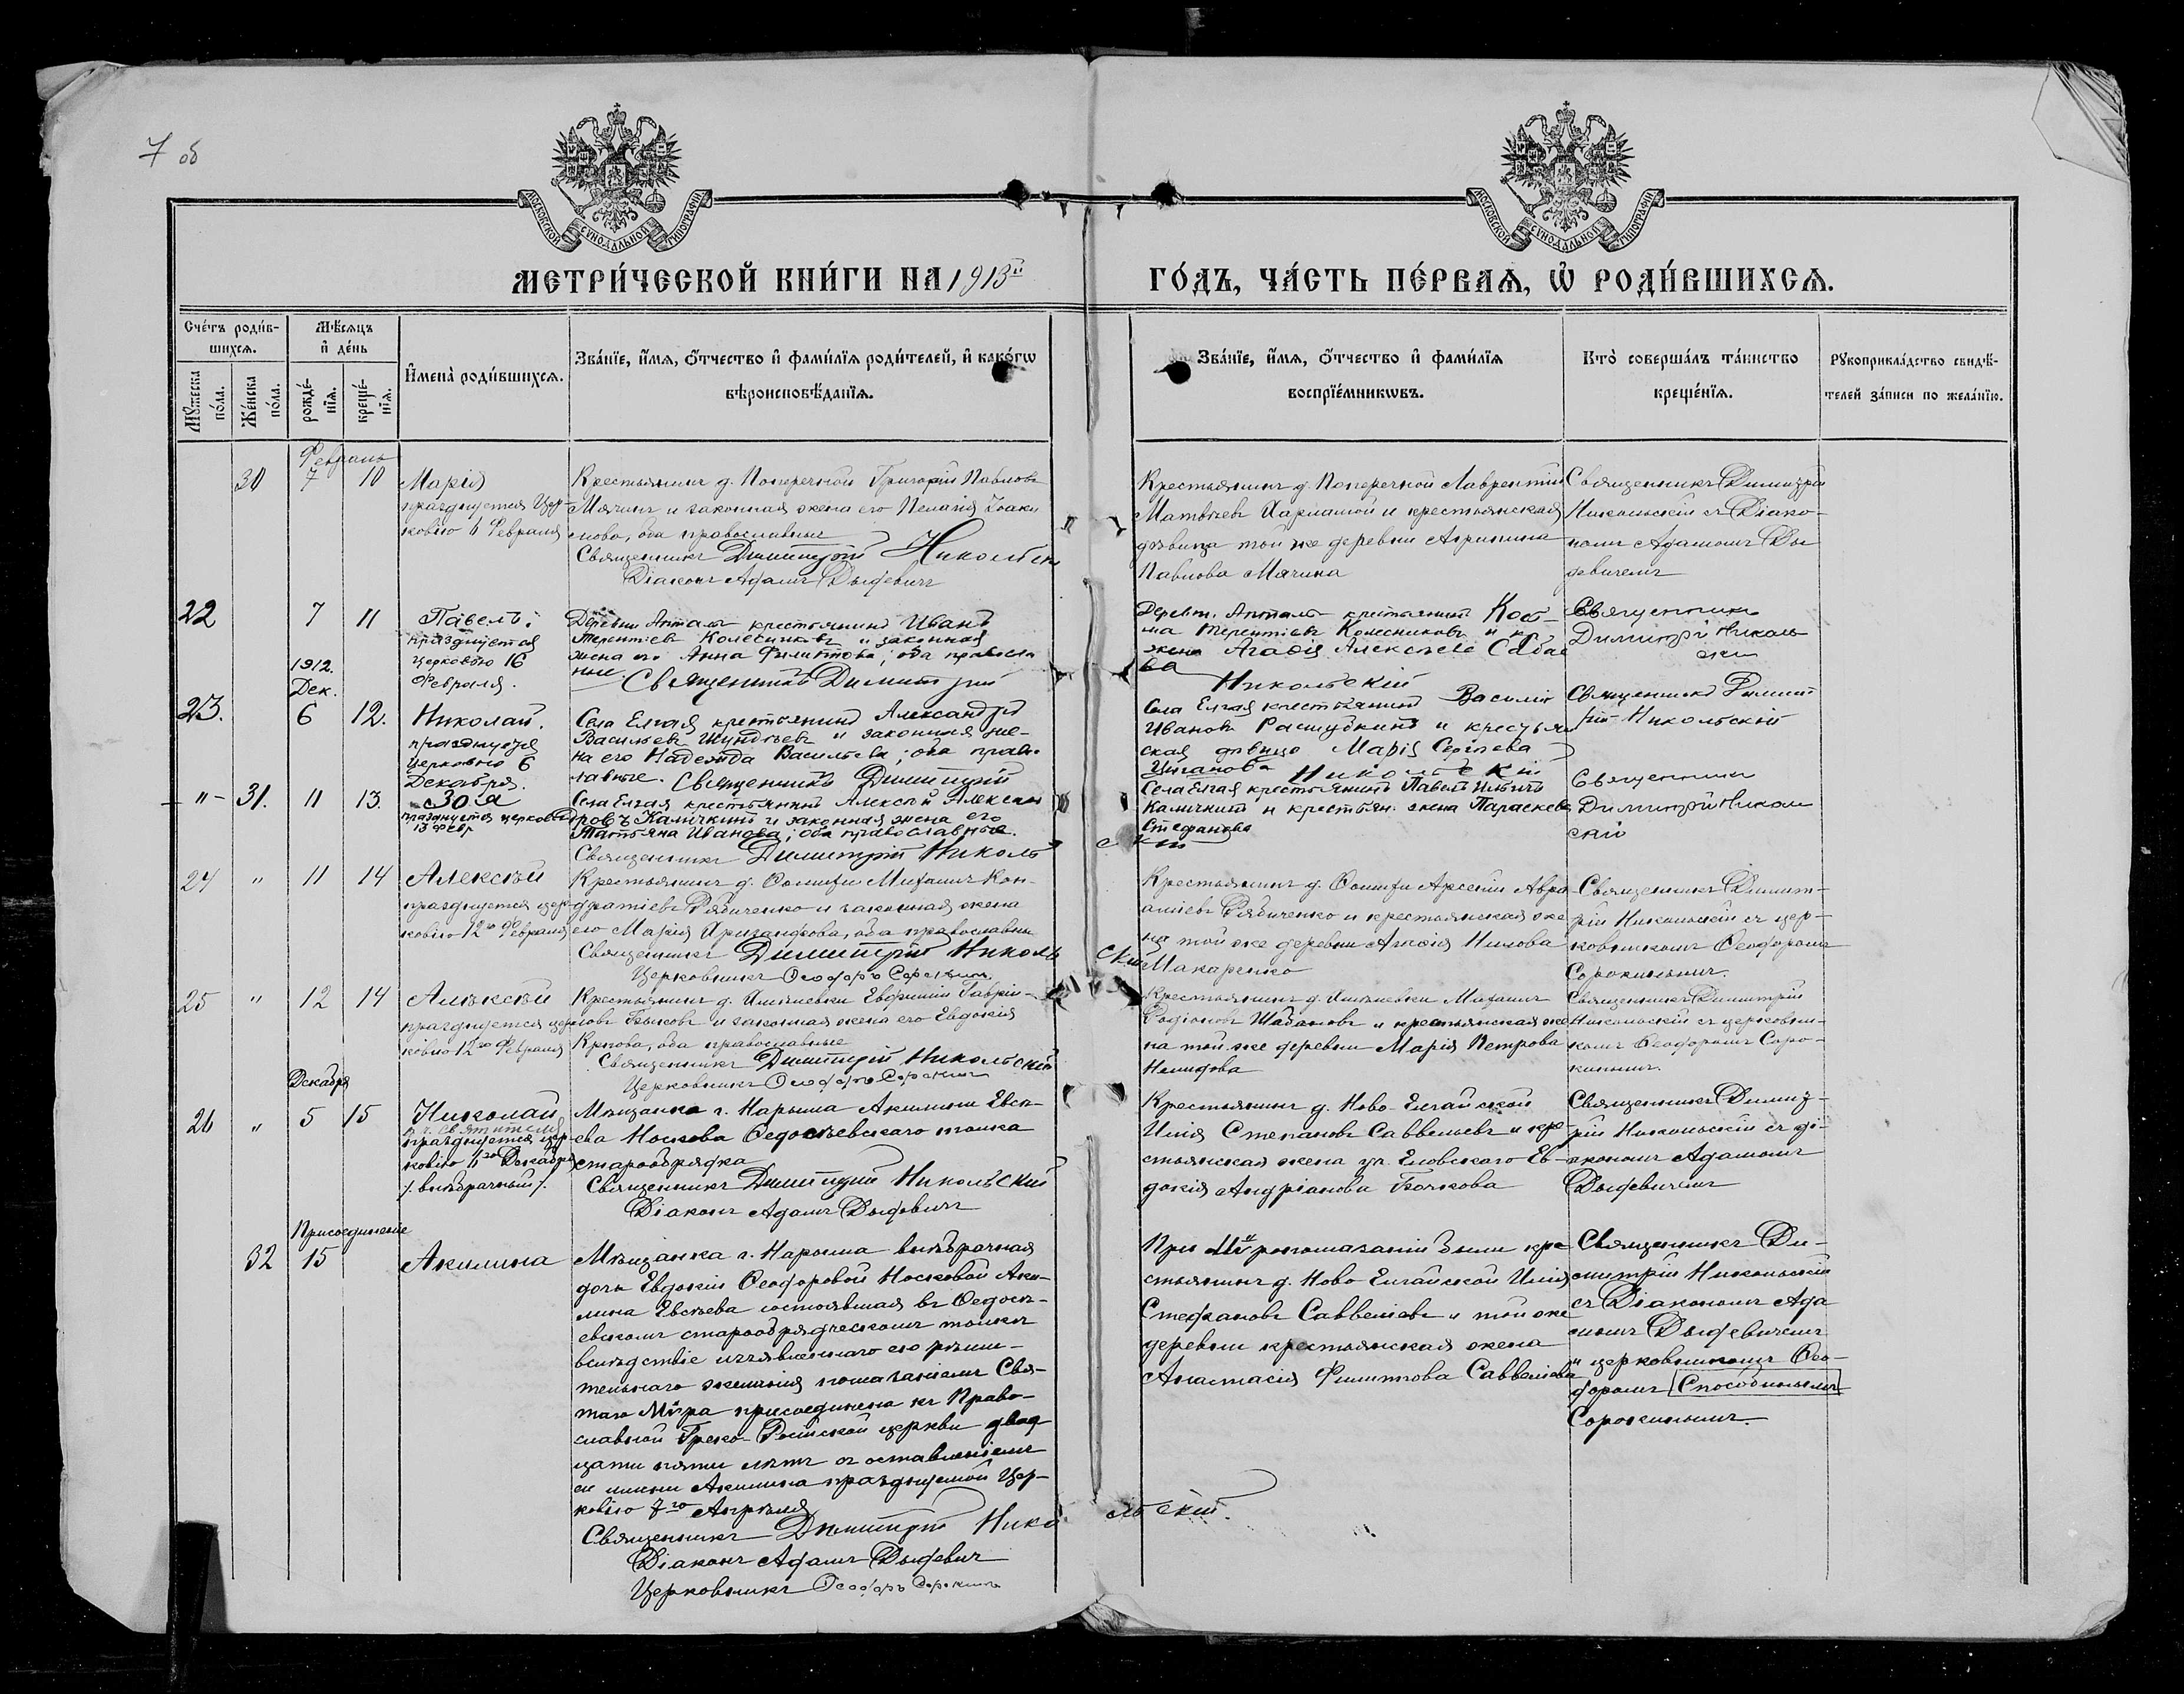 7 об
МОСКОВСКОЙ СѴНОДАЛЬНОЙ ТИПОГРАФІИ
МОСКОВСКОЙ СѴНОДАЛЬНОЙ ТИПОГРАФІИ
МЕТРИ́ЧЕСКОЙ КНИ́ГИ НА 1913й
ГО́ДЪ, ЧА́СТЬ ПЕ́РВАѦ, Ѡ҆ РОДИ́ВШИХСѦ.
Сче́тъ роди́в-
шихсѧ.
Мꙋ́жеска по́ла.
Же́нска по́ла.
Мѣ́сѧцъ
и҆ де́нь
рожде́-
нїѧ.
креще́-
нїѧ.
И҆мена̀ роди́вшихсѧ.
Зва́нїе, и҆́мѧ, ѻ҆́тчество и҆ фами́лїѧ роди́телей, и҆ како́гѡ
вѣроисповѣ́данїѧ.
Зва́нїе, и҆́мѧ, ѻ҆́тчество и҆ фами́лїѧ
воспрїе́мникѡвъ.
Кто̀ соверша́лъ та́инство
креще́нїѧ.
Рꙋкоприкла́дство свидѣ́-
телей за́писи по жела́нїю.
Февраль
30 7 10
Марія
празднуется Цер-
ковію 6 Февраля
Крестьянинъ д. Поперечной Григорій Павловъ
Мячинъ и законная жена его Пелагія Іоаки
мова, оба православные
Священникъ Димитрій Никольскі
Діаконъ Адамъ Дыдевичъ
Крестьянинъ д. Поперечной Лаврентій
Матвѣевъ и крестьянская
дѣвица той же деревни Агрипина
Павлова Мячина
Священникъ Димитрій
Никольскій съ Діако-
номъ Адамомъ Ды
девичемъ
22 7 11
Павелъ:
празднуется
церковью 16
Февраля.
Деревни Апталы крестьянинъ Иванъ
Терентіевъ Колесниковъ и законная
жена его Анна Филиппова; оба правосла
ные. Священникъ Димитрій
Никольскій
Деревн. Апталы крестьянинъ Кос-
ма Терентіевъ Колесниковъ и кр.
жена Агаѳія Алексѣева Саба
ва
Священникъ
Димитрій Николь
ски
1912.
Дек.
23. 6 12.
Николай.
празднуется
Церковью 6
Декабря.
Села Елгая крестьянинъ Александръ
Васильевъ Шундѣевъ и законная же-
на его Надежда Васильева; оба право
лавные. Священникъ Димитрій
Никольскій
Села Елгая крестьянинъ Василій
Ивановъ и крестьян
ская дѣвица Марія Сергѣева
Цыганова
Священникъ Димит
рій Никольскій
"- 31. 11 13.
Зоя
празднуется церков
13 февр
Села Елгая крестьянинъ Алексѣй Алексан
дровъ Каличкинъ и законная жена его
Татьяна Иванова; оба православные.
Священникъ Димитрій Николь
скій
Села Елгая крестьянинъ Павелъ Ильинъ
Каличкинъ и крестьян. жена Параскева
Стефанова
Священникъ
Димитрій Николь
скій
24 " 11 14
Алексѣй
празднуется цер-
ковію 12го Февраля
Крестьянинъ д. Михаилъ Кон-
дратіевъ Рябиченко и законная жена
его Марія Хрисанфова, оба православны
Священникъ Димитрій Николь
скій
Церковникъ Ѳеодоръ Сорокинъ
Крестьянинъ д. Арсеній Авра
аміевъ Рябиченко и крестьянская же
на той же деревни Агаѳія Нилова
Макаренко
Священникъ Димит-
рій Никольскій съ цер-
ковникомъ Ѳеодоромъ
Сорокинымъ.
25 " 12 14
Алексѣй
празднуется цер
ковію 12го Февраля
Крестьянинъ д. Евфимій Гаврі-
ловъ Быковъ и законная жена его Евдокія
Карпова, оба православные
Священникъ Димитрій Никольскій
Церковникъ Ѳеодоръ Сорокинъ
Крестьянинъ д. Михаилъ
Родіоновъ Шабановъ и крестьянская же
на той же деревни Марія Петрова
Нелидова
Священникъ Димитрій
Никольскій съ церковни-
комъ Ѳеодоромъ Соро-
кинымъ.
Декабря
26 " 5 15
Николай
въ ч. святителя
празднуется цер-
ковію 6го Декабря
/. внѣбрачный /.
Мѣщанка г. Нарыма Акилина Евсѣ-
ева Носкова Ѳедосѣевскаго толка
старообрядка
Священникъ Димитрій Никольскій
Діаконъ Адамъ Дыдевичъ
Крестьянинъ д. Ново-Елгайской
Илія Степановъ Саввельевъ и кре-
стьянская жена уч. Еловскаго Ев-
докія Андріанова Бочкова
Священникъ Димит-
рій Никольскій съ ді-
акономъ Адамомъ
Дыдевичемъ
Присоединеніе
32 15
Акилина
Мѣщанка г. Нарыма внѣбрачная
дочь Евдокіи Ѳеодоровой Носковой Аки-
лина Евсѣева состоявшая въ Ѳедосѣ-
евскомъ старообрядческомъ толкѣ
вслѣдствіе изъявленнаго ею рѣши-
тельнаго желанія помазаніемъ Свя-
таго Мѵра присоединена къ Право-
славной Греко-Россійской церкви двад
цати пяти лѣтъ съ оставленіемъ
ей имени Акилина празднуемой Цер-
ковію 7го Апрѣля
Священникъ Димитрій Нико
льскій.
Діаконъ Адамъ Дыдевичъ
Церковникъ Ѳеодоръ Сорокинъ
При Мѵропомазаніи были кре
стьянинъ д. Ново-Елгайской Илія
Стефановъ Саввеліевъ и той же
деревни крестьянская жена
Анастасія Филиппова Саввеліева
Священникъ Ди-
митрій Никольскій
съ Діакономъ Ада
момъ Дыдевичемъ
и церковникомъ Ѳео-
доромъ Способинымъ
Сорокинымъ.